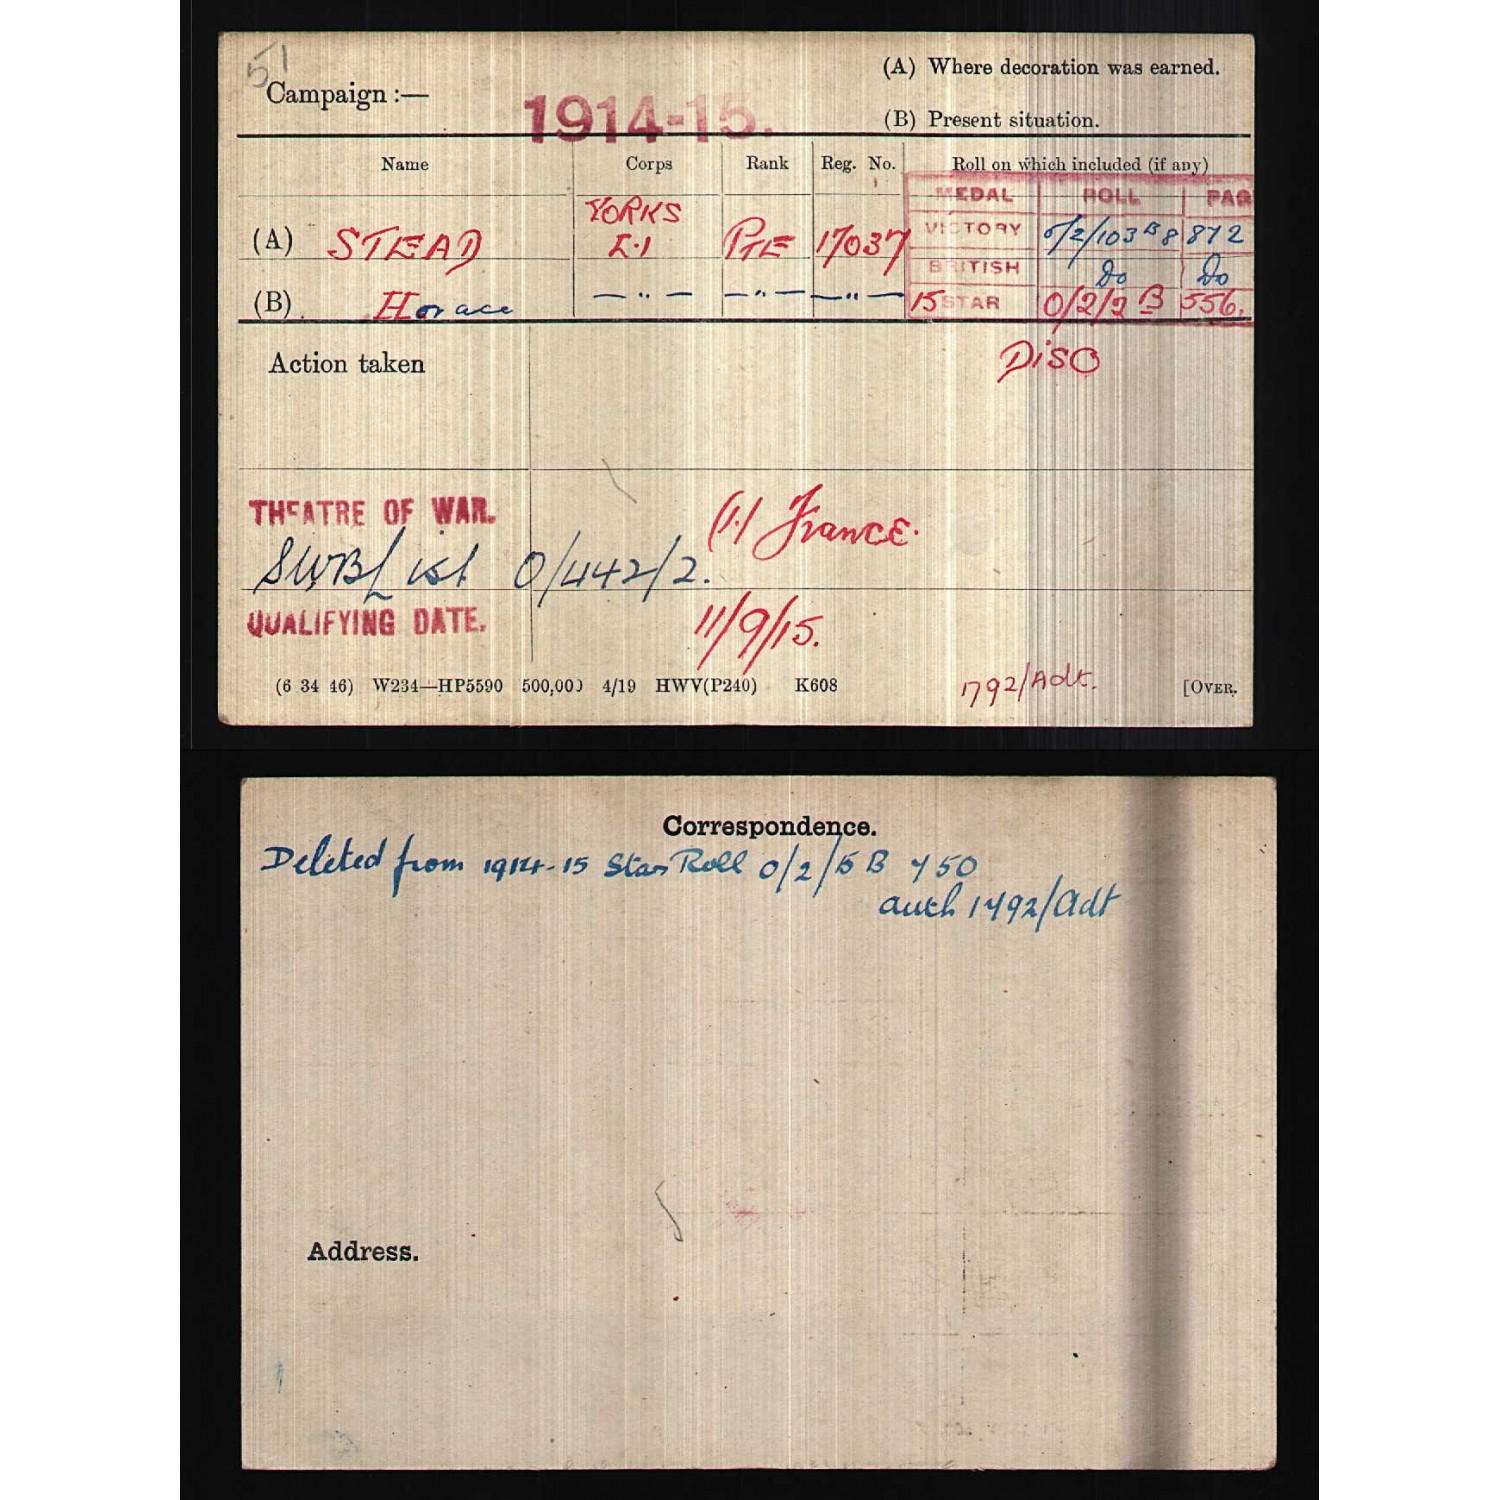 51
Campaign :— 1914-15. (A) Where decoration was earned.
(B) Present situation.
Name Corps Rank Reg. No. Roll on which included (if any)
MEDAL ROLL PAG
(A) STEAD YORKS L.I PTE 17037 VICTORY O/2/103 B 8 872
BRITISH Do Do
(B) Horace — " — — " — — " — 15 STAR O/2/2 B 556.
Action taken DISC
THEATRE OF WAR. (1) France.
SWB List O/442/2.
QUALIFYING DATE. 11/9/15.
(6 34 46) W234—HP5590 500,000 4/19 HWV(P240) K608 1792/Adt. [OVER.
Correspondence.
Deleted from 1914-15 Star Roll O/2/5 B 750
auth 1792/Adt
Address.